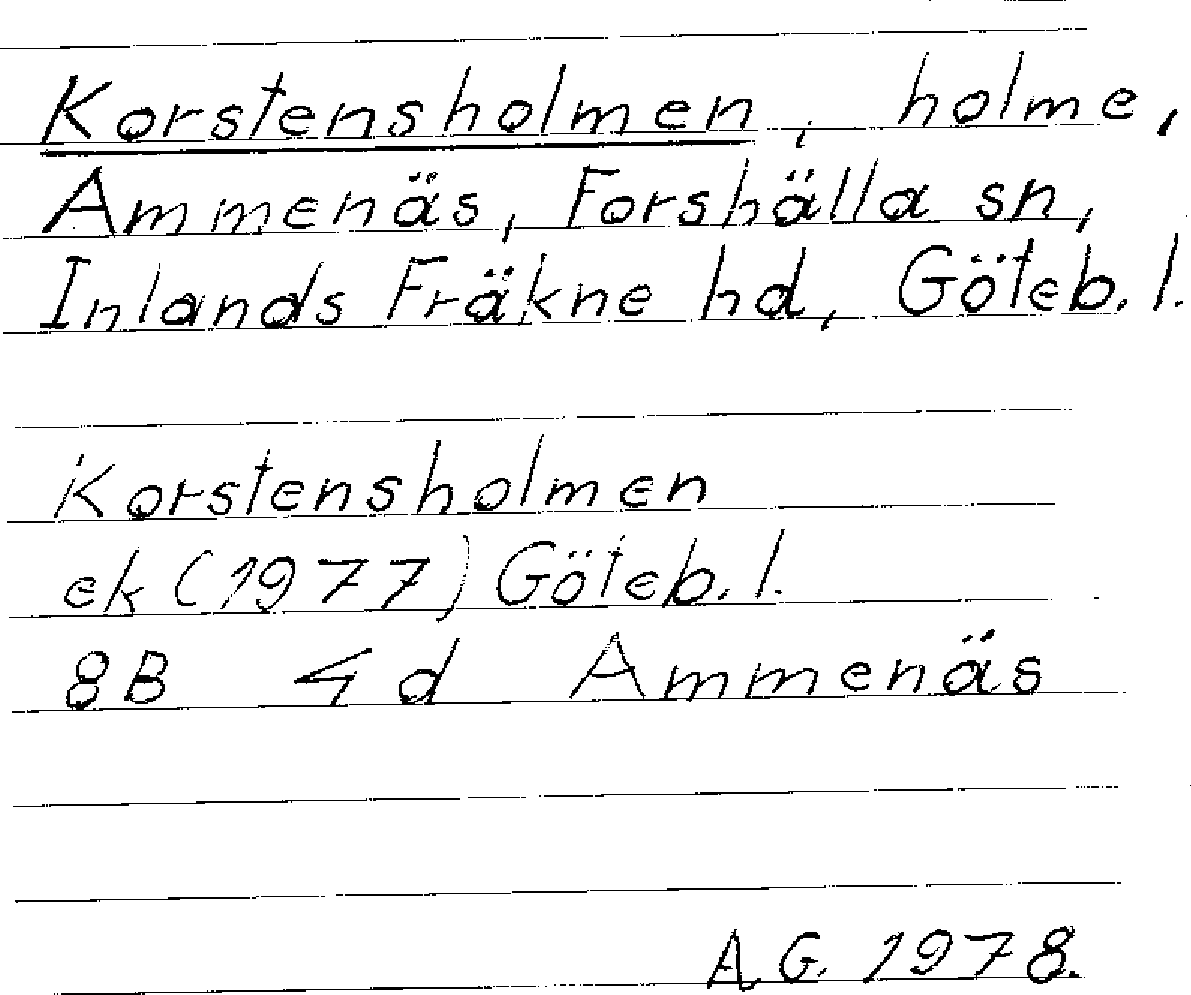 Korstensholmen, holme,
Ammenäs, Forshälla sn,
Inlands Fräkne hd, Göteb. l.
Korstensholmen
ek (1977) Göteb. l.
8B 4d Ammenäs
A.G. 1978.